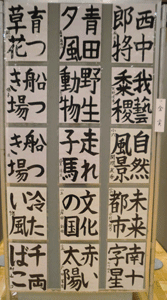 西中
郎将
我藝
黍稷
自然
風景
未来
都市
南十
字
青田
夕風
野生
動物
走れ
子馬
文化
の国
赤い
太陽
育つ
草花
船つ
き場
船つ
き場
冷た
い風
千両
ばこ